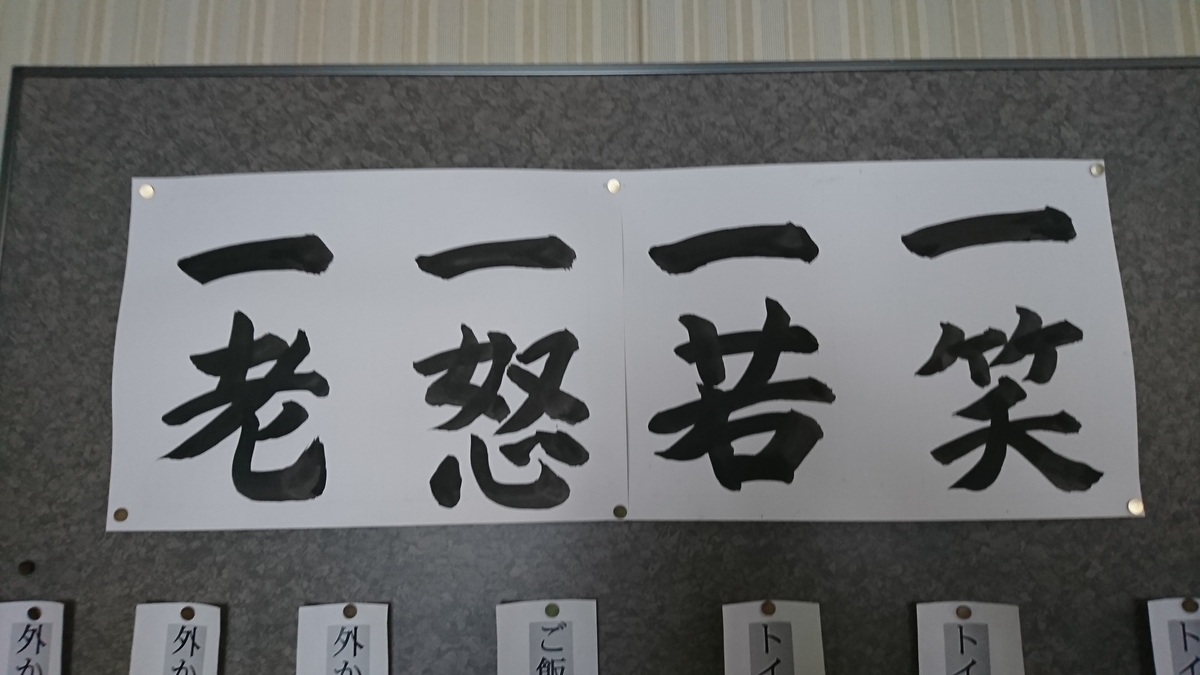 一笑
一若
一怒
一老
外か
外か
外か
ご飯
トイ
トイ
トイ